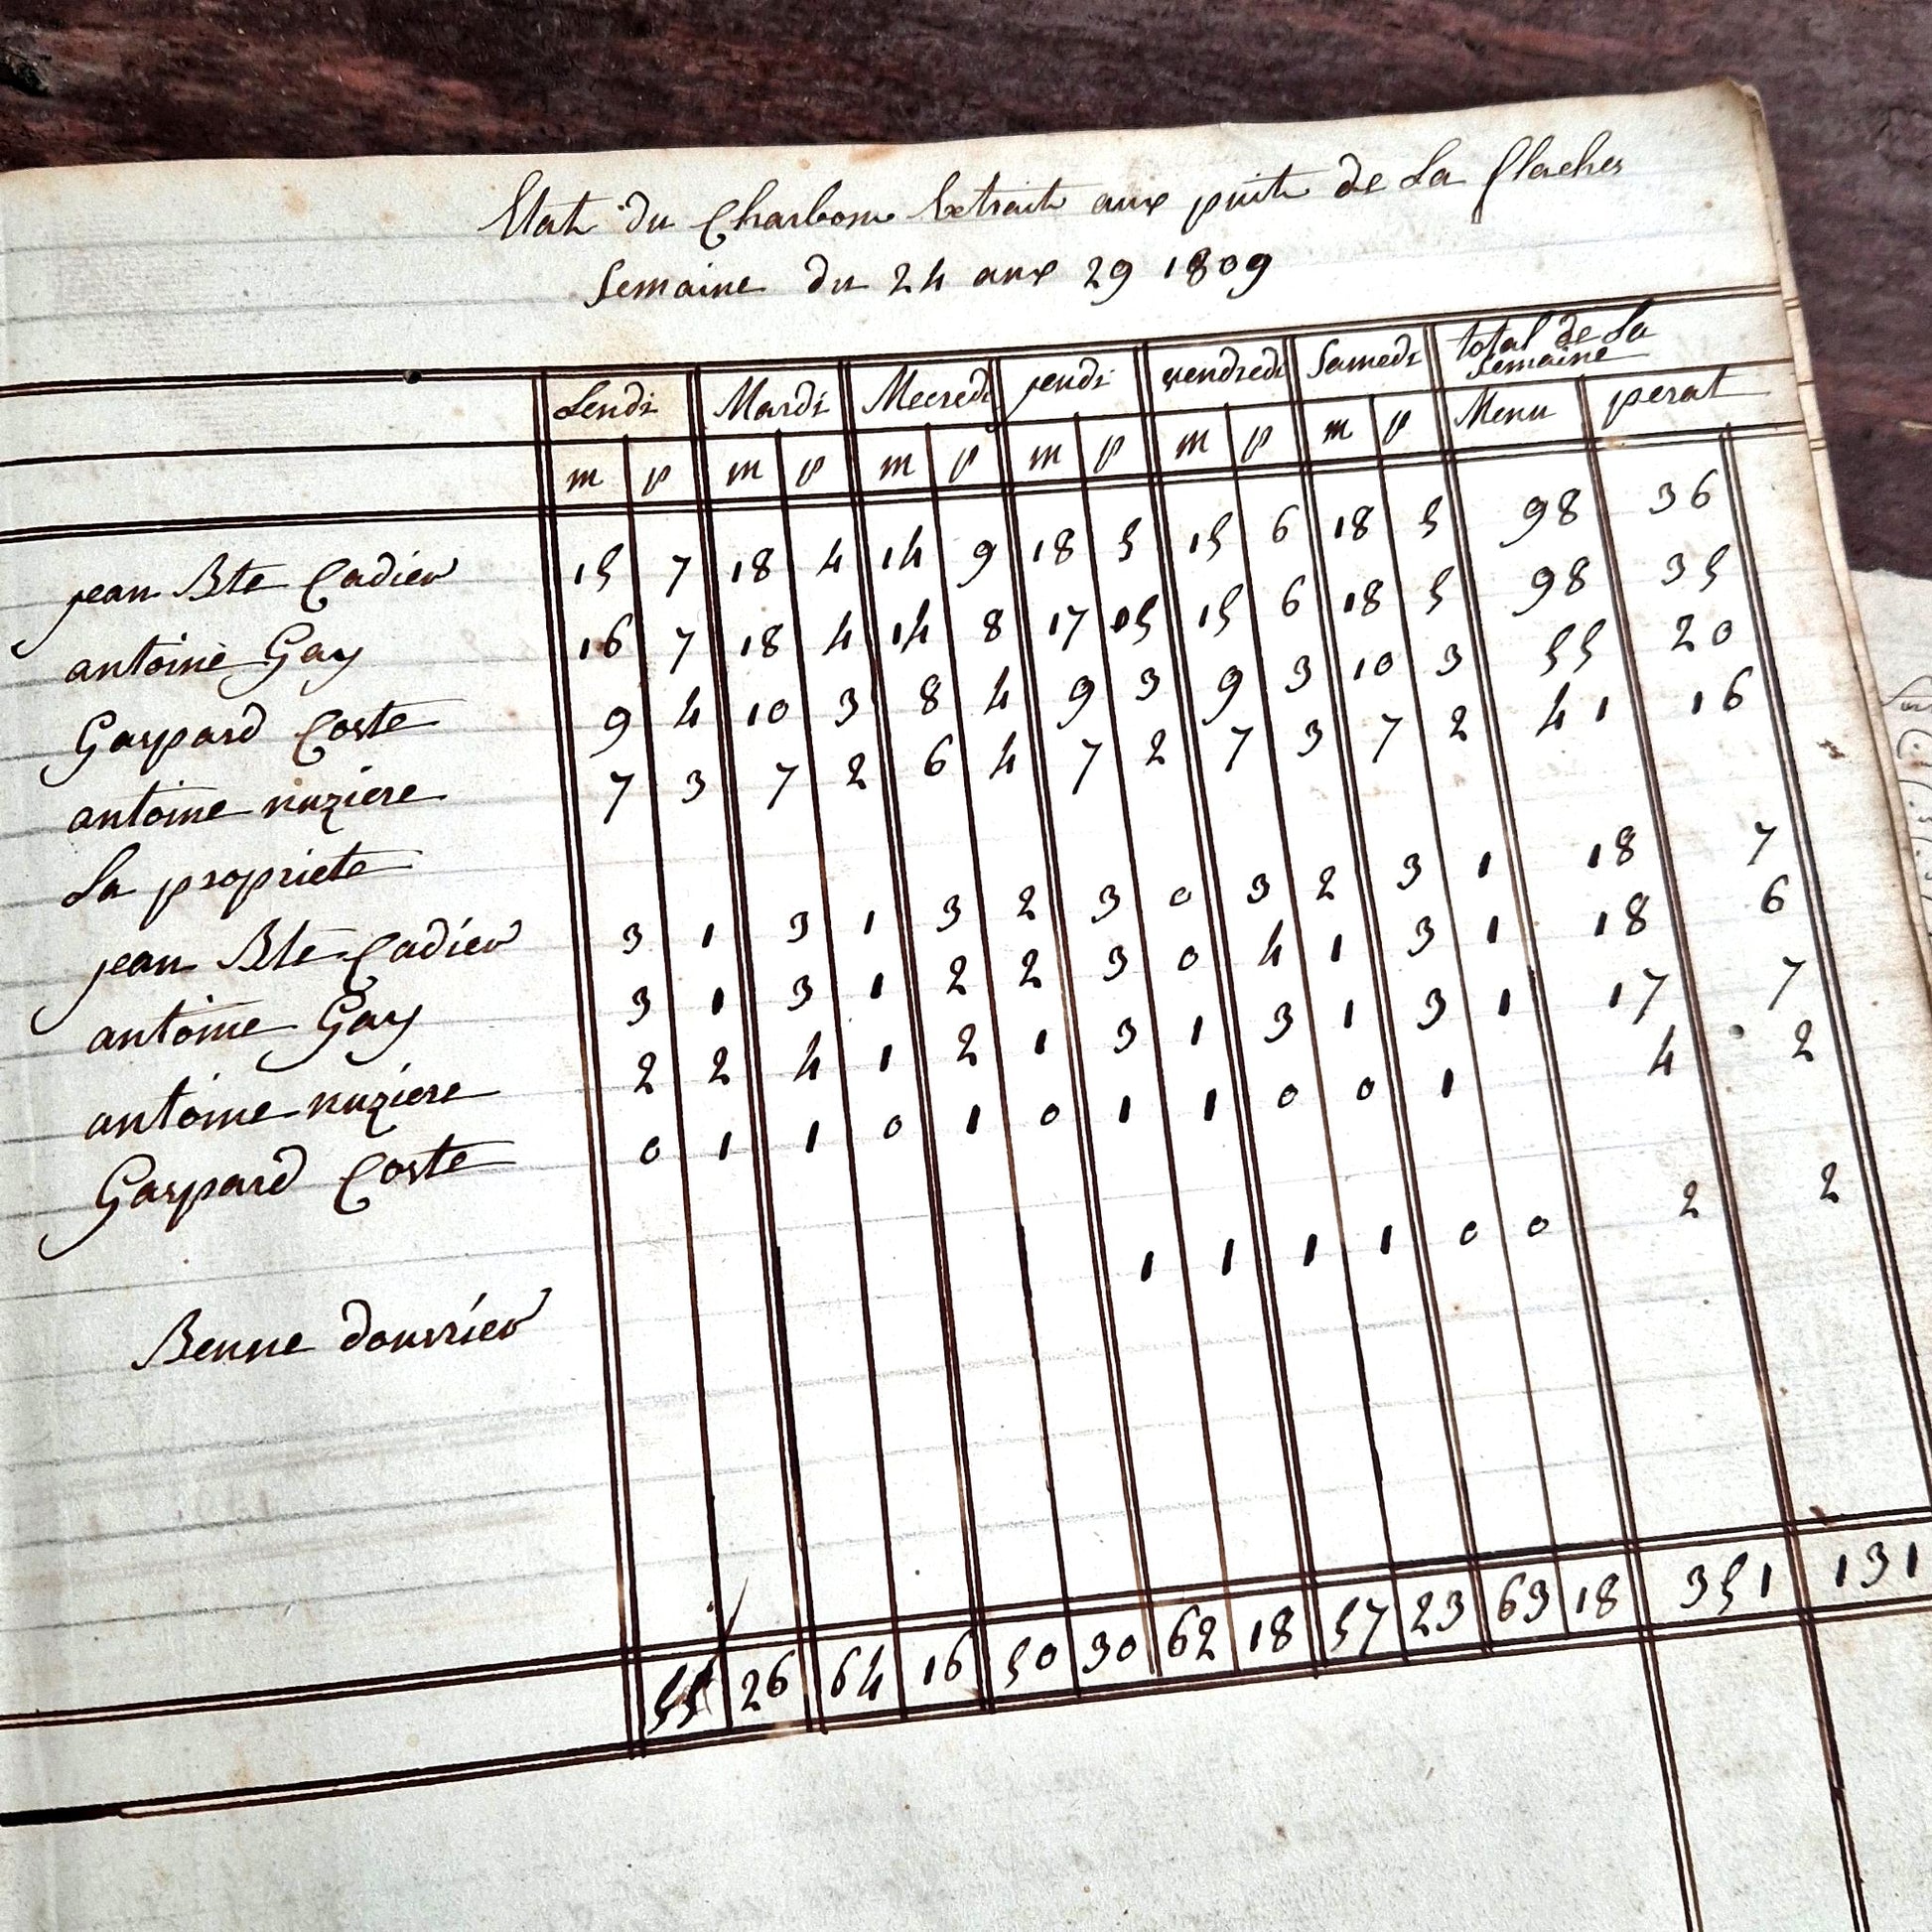 Etat du Charbon Extrait aux puit de La flaches
Semaine du 24 aux 29 1809
Lendi Mardi Mecredi jeudi vendredi Samedi total de La semaine
m p m p m p m p m p m p Menu perat
jean Bte Cadier 15 7 18 4 14 9 18 5 15 6 18 5 98 36
antoine Gay 16 7 18 4 14 8 17 5 15 6 18 5 98 35
Gaspard Coste 9 4 10 3 8 4 9 3 9 3 10 3 55 20
antoine nuziere 7 3 7 2 6 4 7 2 7 3 7 2 41 16
La propriete
jean Bte Cadier 3 1 3 1 3 2 3 0 3 2 3 1 18 7
antoine Gay 3 1 3 1 2 2 3 0 4 1 3 1 18 6
antoine nuziere 2 2 4 1 2 1 3 1 3 1 3 1 17 7
Gaspard Coste 0 1 1 0 1 0 1 1 0 0 1 4 2
Benne douvrier 1 1 1 1 0 0 2 2
55 26 64 16 50 30 62 18 57 23 63 18 351 131